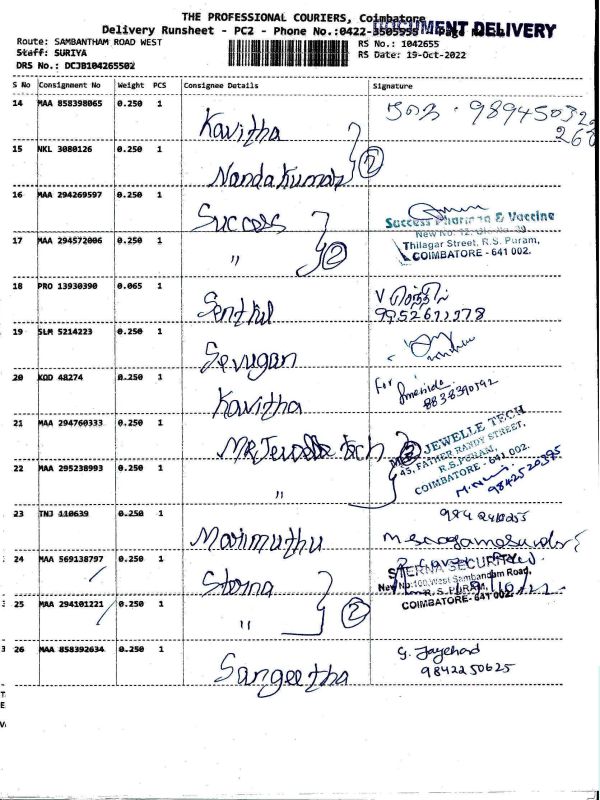 THE PROFESSIONAL COURIERS, Coimbatore
DOCUMENT DELIVERY
Delivery Runsheet - PC2 - Phone No.:0422-3505555
Route: SAMBANTHAM ROAD WEST
RS No.: 1042655
Staff: SURIYA
RS Date: 19-Oct-2022
DRS No.: DCJB104265502
S No Consignment No Weight PCS Consignee Details Signature
14 MAA 858398065 0.250 1 Kavitha
15 NKL 3080126 0.250 1 Nandakumar 2
16 MAA 294269597 0.250 1 Success
Success Pharma & Vaccine
17 MAA 294572006 0.250 1 " 2
Thilagar Street, R.S. Puram,
COIMBATORE - 641 002.
18 PRO 13930390 0.065 1 Senthil
9952611178
19 SLM 5214223 0.250 1 Sevugan
20 KOD 48274 0.250 1 Kavitha For
8838390192
21 MAA 294760333 0.250 1 MR Jewelle tech 2
JEWELLE TECH
45, FATHER RANDY STREET,
R.S. PURAM,
COIMBATORE - 641 002.
22 MAA 295238993 0.250 1 "
9842520395
23 TNJ 110639 0.250 1 Marimuthu
24 MAA 569138797 0.250 1 Sterna
STERNA SECURITY
New No:160, West Sambandam Road,
R.S. PURAM,
COIMBATORE- 641 002.
25 MAA 294101221 0.250 1 " 2
26 MAA 858392634 0.250 1 Sangeetha
G. Jayachand
9842250625